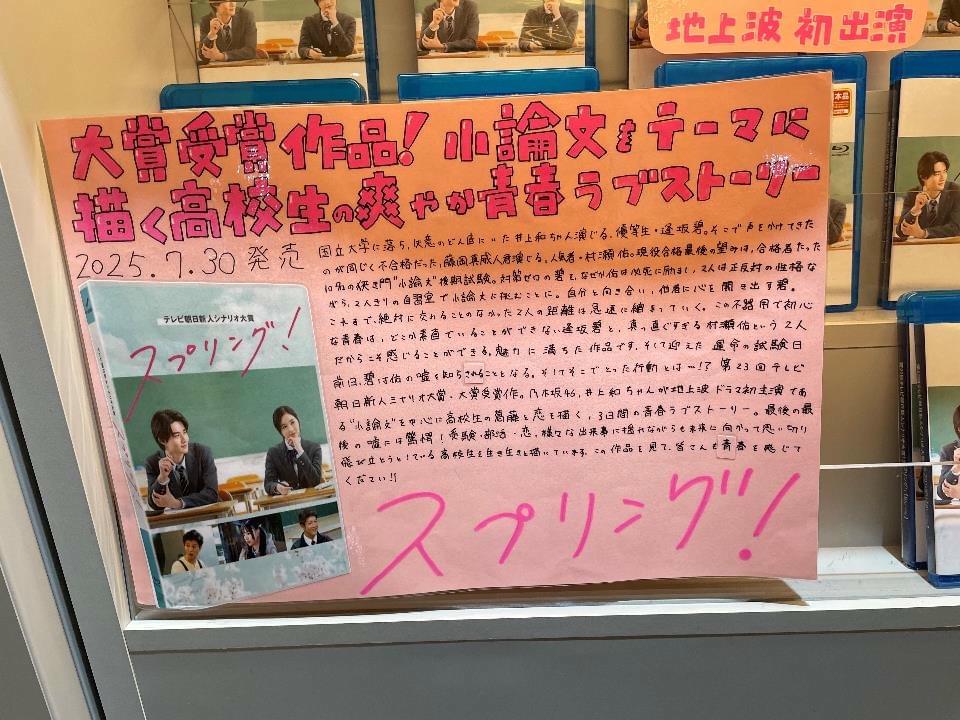 地上波 初出演
大賞受賞作品! 小論文をテーマに
描く高校生の爽やか青春ラブストーリー
2025.7.30 発売
国立大学に落ち、失意のどん底にいた井上和ちゃん演じる、優等生・逢坂碧。そこで声をかけてきた
のが同じく不合格だった、藤岡真威人君演じる、人気者・村瀬佑。現役合格最後の望みは、合格者たった
10名の狭き門"小論文"後期試験。対策ゼロの碧を、なぜか佑は必死に励まし、2人は正反対の性格な
がら、2人きりの自習室で小論文に挑むことに。自分と向き合い、他者に心を開き出す碧。
これまで、絶対に交わることのなかった2人の距離は急速に縮まっていく。この不器用で初心
な青春は、どこか素直でいることができない逢坂碧と、真っ直ぐすぎる村瀬佑という2人
だからこそ感じることができる、魅力に満ちた作品です。そして迎えた運命の試験日
前日、碧は佑の嘘を知らされることとなる。そしてそこでとった行動とは…!?第23回テレビ
朝日新人シナリオ大賞・大賞受賞作。乃木坂46、井上和ちゃんが地上波ドラマ初主演であ
る"小論文"を中心に高校生の葛藤と恋を描く、3日間の青春ラブストーリー。最後の最
後の嘘には驚愕!受験・部活・恋、様々な出来事に揺れながらも未来に向かって思い切り
飛び立とうとしている高校生を生き生きと描いています。この作品を見て、皆さんも青春を感じて
ください!!
テレビ朝日新人シナリオ大賞
スプリング!
スプリング!